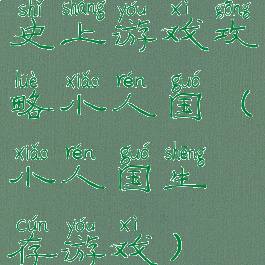 shǐ shàng yóu xì gōng
史上游戏攻
lüè xiǎo rén guó
略小人国（
xiǎo rén guó shēng
小人国生
cún yóu xì
存游戏）